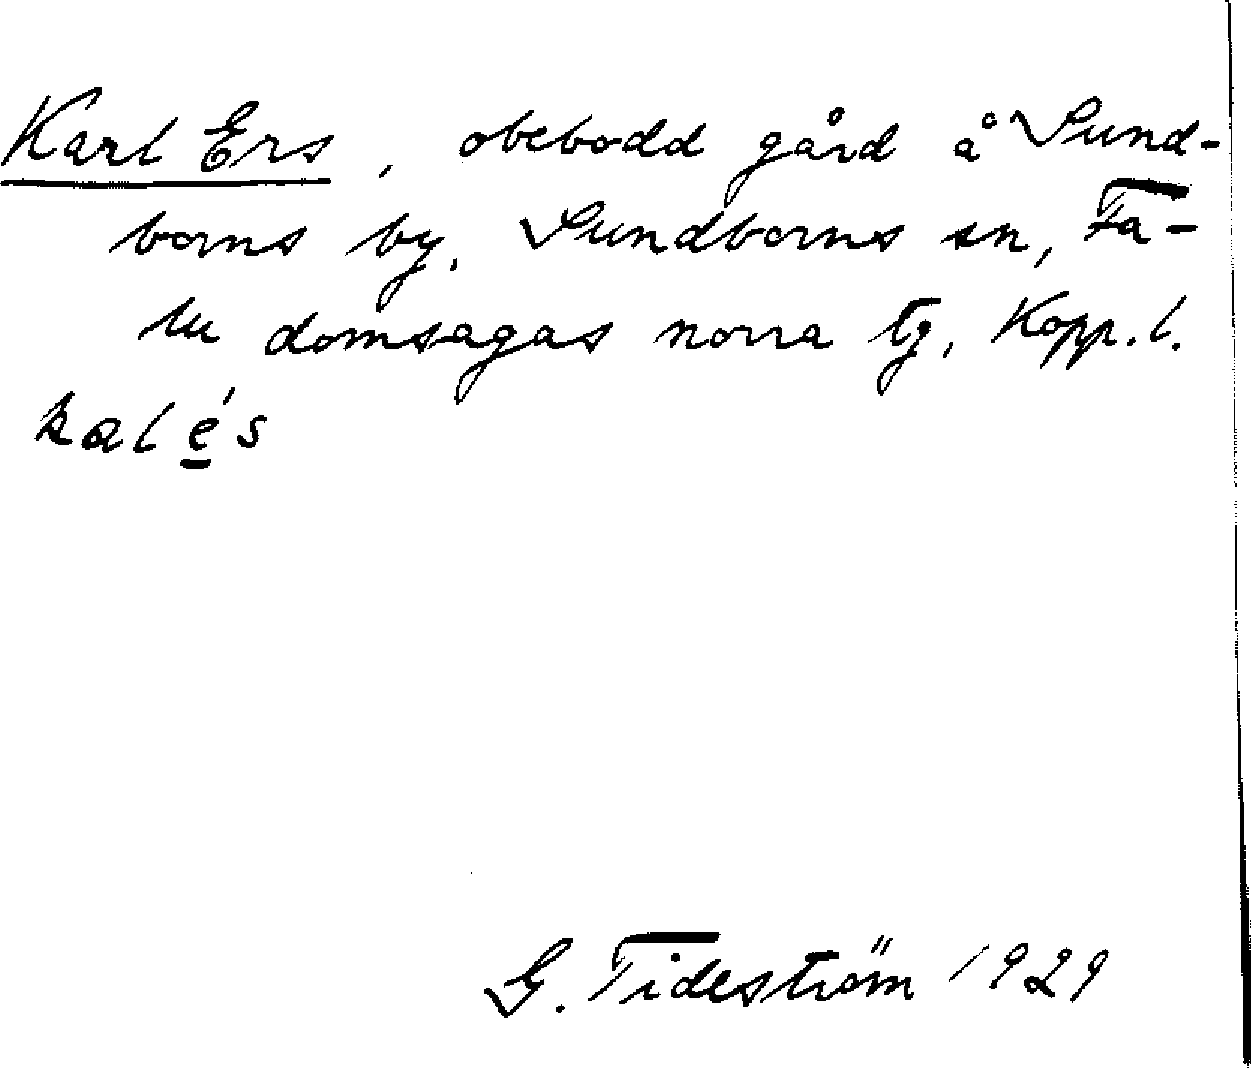 Karl Ers, obebodd gård å Sund-
borns by, Sundborns sn, Fa-
lu domsagas norra tg, Kopp.l.
kalé̲s
G. Tideström 1929